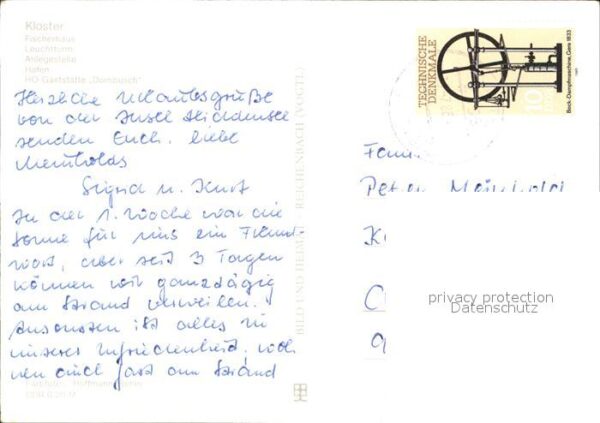 Kloster
Fischerhaus
Leuchtturm
Anlegestelle
Hafen
HO-Gaststätte „Dornbusch“
Herzliche Urlaubsgrüße
von der Insel Hiddensee
senden Euch, liebe
Meinholds
Sigrid u. Kurt
In der 1. Woche war die
Sonne für uns ein Fremd-
wort, aber seit 3 Tagen
können wir ganztägig
am Strand verweilen.
Ansonsten ist alles zu
unserer Zufriedenheit.
nen auch fast am Strand
BILD UND HEIMAT REICHENBACH (VOGTL)
TECHNISCHE
DENKMALE
Bock-Dampfmaschine, Gera 1833
10
DDR
1985
Fam.
Peter Meinhold
privacy protection
Datenschutz